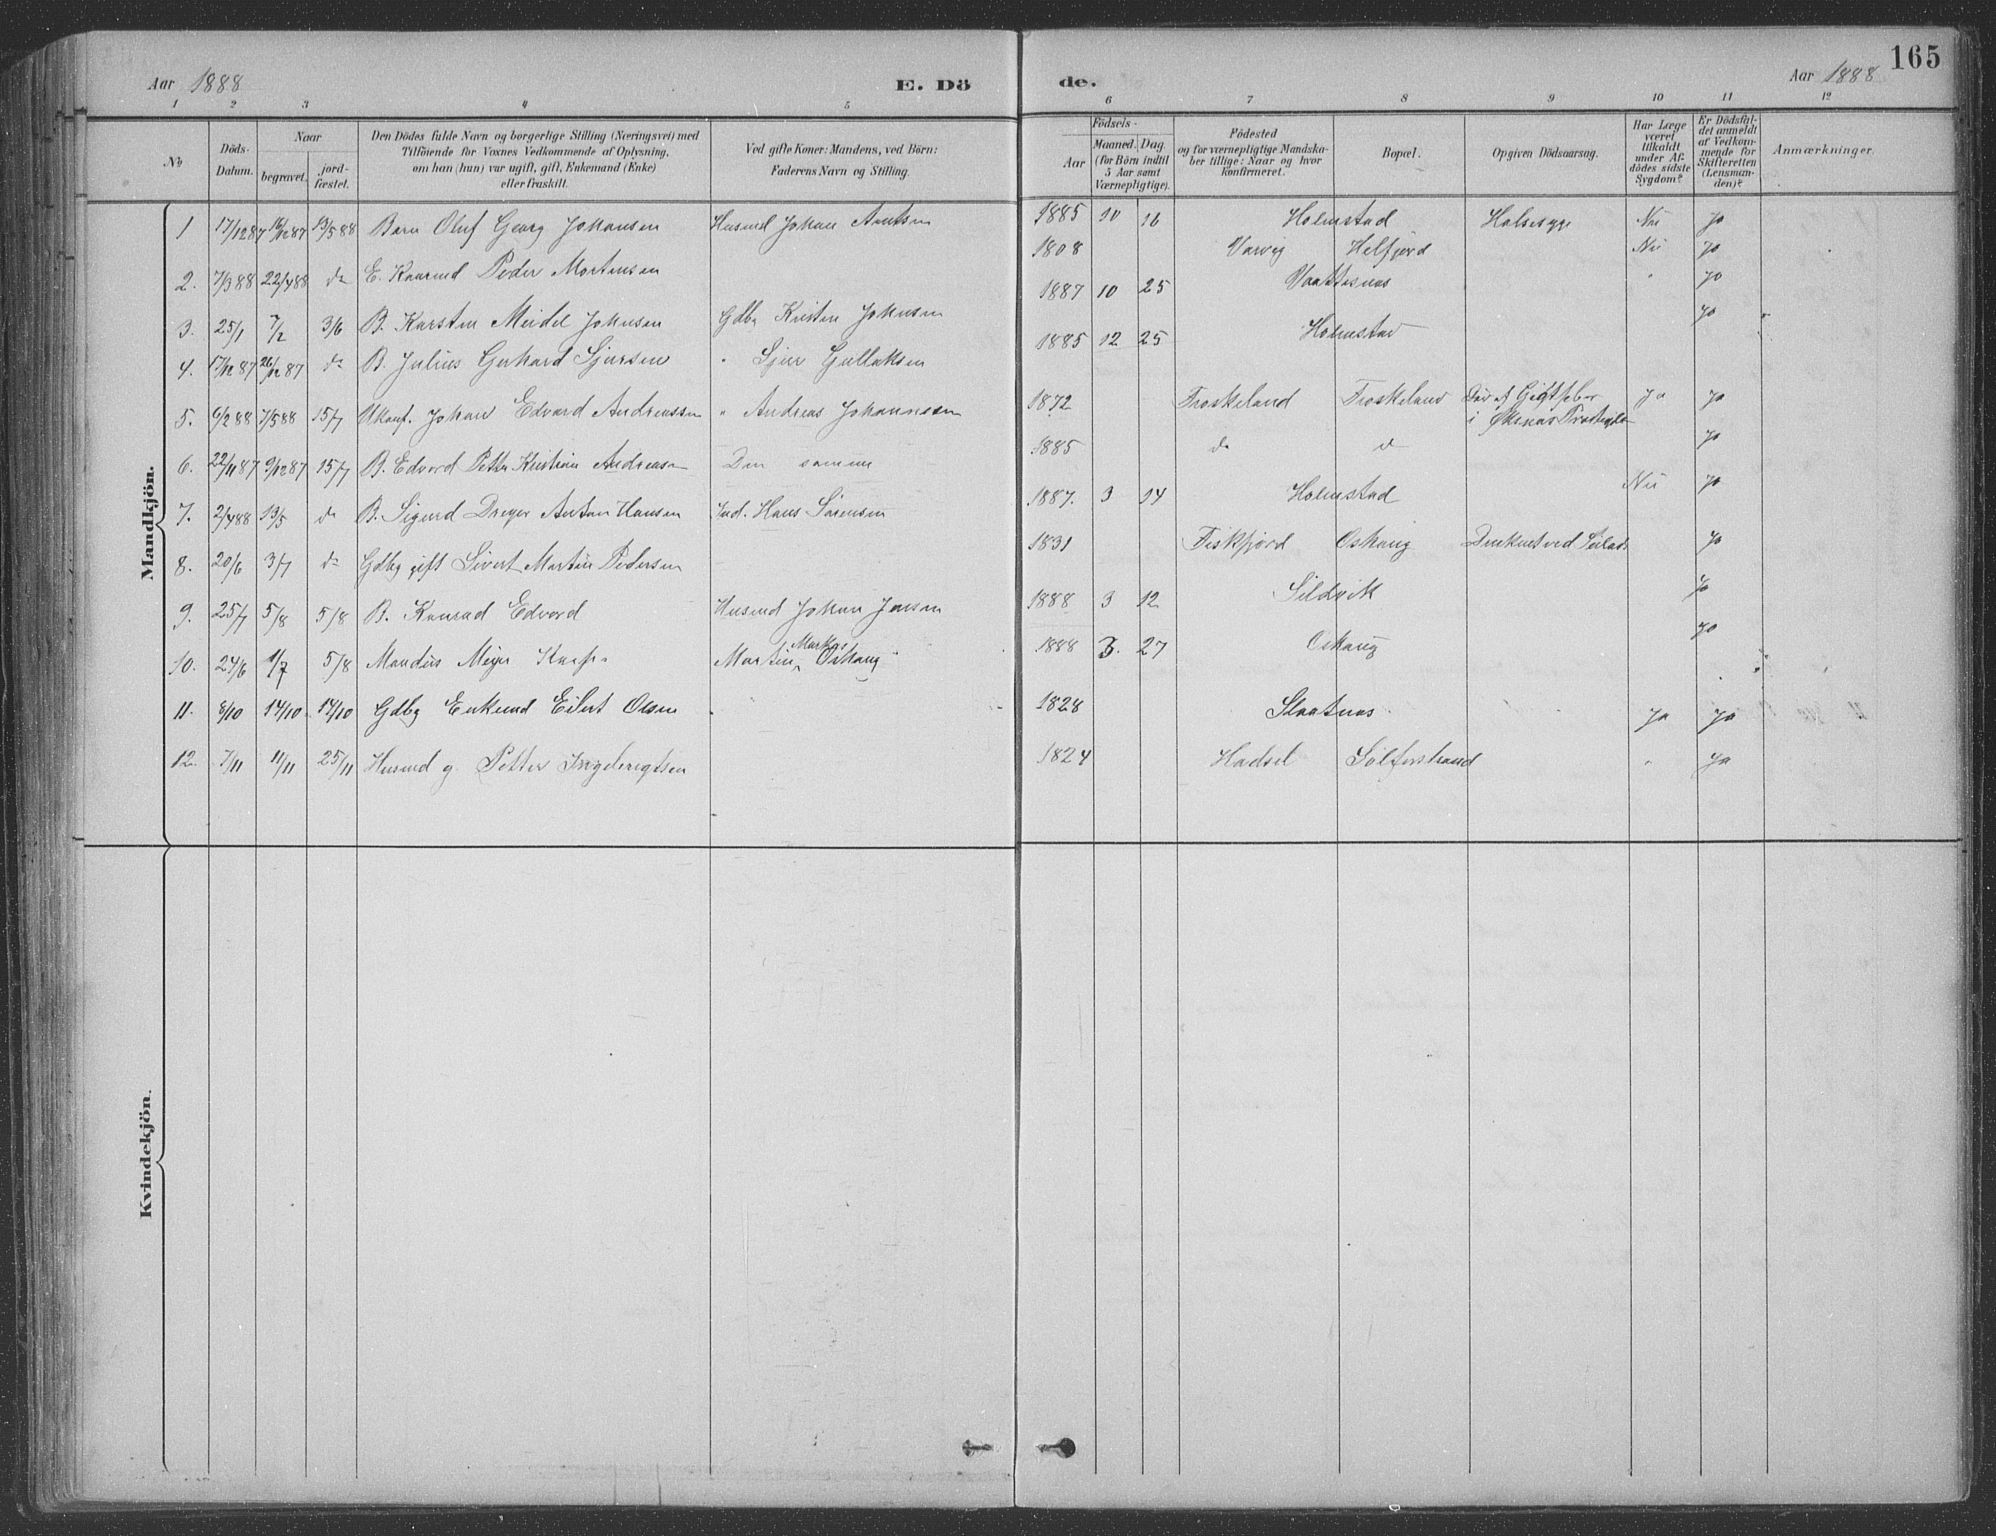 165
Aar 1888
E. Dö
de.
Aar 1888
1 2 3 4 5 6 7 8 9 10 11 12
No
Döds-
Datum.
Naar
begravet.
jord-
fæstet.
Den Dödes fulde Navn og borgerlige Stilling (Næringsvei) med
Tilföiende for Voxnes Vedkommende af Oplysning,
om han (hun) var ugift, gift, Enkemand (Enke)
eller fraskilt.
Ved gifte Koner: Mandens, ved Börn:
Faderens Navn og Stilling.
Födsels-
Aar
Maaned. Dag.
(for Börn indtil
5 Aar samt
Værnepligtige).
Födested
og for værnepligtige Mandska-
ber tillige: Naar og hvor
konfirmeret.
Bopæl.
Opgiven Dödsaarsag.
Har Læge
været
tilkaldt
under Af-
dödes sidste
Sygdom?
Er Dödsfal-
det anmeldt
af Vedkom-
mende for
Skifteretten
(Lensman-
den)?
Anmærkninger.
Mandkjön.
1 17/1287 13/588 Barn Oluf Georg Johansen Husmd Johan Arntsen 1885 10 16 Holmstad Halsesyge Nei Ja
2. 7/388 22/488 do E. Kaarmd Peder Mortensen 1808 Helfjord Nei Ja
3. 25/1 7/2 3/6 B. Karsten Meidel Johnsen Gdbg Kristen Johnsen 1887 10 25 Vaattesnæs " Ja
4. 17/1287 26/1287 do B. Julius Gerhard Sjursen " Sjur Gullaksen 1885 12 25 Holmstad Ja
5. 6/288 7/588 15/7 Ukonf. Johan Edvard Andreassen " Andreas Johannesen 1872 Froskeland Froskeland Død af Gigtfeber Ja Ja
i Øksnæs
6. 22/1187 9/1287 15/7 B. Edvard Petter Kristian Andreasen Den samme 1885 do do Ja
7. 2/488 13/5 do B. Sigurd Dreyer Anton Hansen Ind. Hans Sørensen 1887. 3 14 Holmstad Nei Ja
8. 20/6 3/7 do Gdbg gift Sivert Martin Pedersen 1831 Fiskfjord Oshaug Druknet ved Ja
9. 25/7 5/8 5/8 B. Konrad Edvard Husmd Johan Jensen 1888 3 12 Sildvik Ja
10. 24/6 1/7 5/8 Mandius Meyer Martin Markus Oshaug 1888 3. 27 Oshaug Ja
11. 8/10 14/10 14/10 Gdbg Enkemd Eilert Olsen 1828 Slaatnæs Ja Ja
12. 7/11 11/11 25/11 Husmd g. Petter Ingebrigtsen 1824 Hadsel " Ja
Kvindekjön.